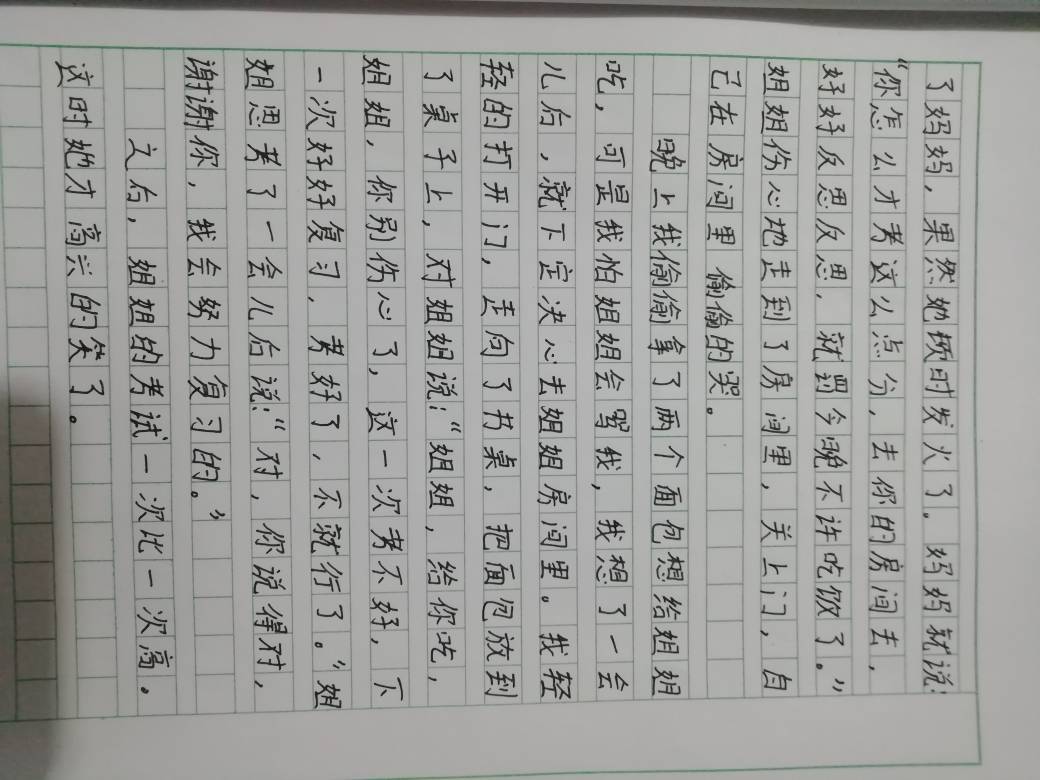 了妈妈，果然她顿时发火了。妈妈就说：
“你怎么才考这么点分，去你的房间去，
好好反思反思，就到今晚不许吃饭了。”
姐姐伤心地走到了房间里，关上门，自
己在房间里偷偷的哭。
晚上我偷偷拿了两个面包想给姐姐
吃，可是我怕姐姐会骂我，我想了一会
儿后，就下定决心去姐姐房间里。我轻
轻的打开门，走向了书桌，把面包放到
了桌子上，对姐姐说：“姐姐，给你吃，
姐姐，你别伤心了，这一次考不好，下
一次好好复习，考好了，不就行了。”姐
姐思考了一会儿后说：“对，你说得对，
谢谢你，我会努力复习的。”
之后，姐姐的考试一次比一次高。
这时她才高兴的笑了。